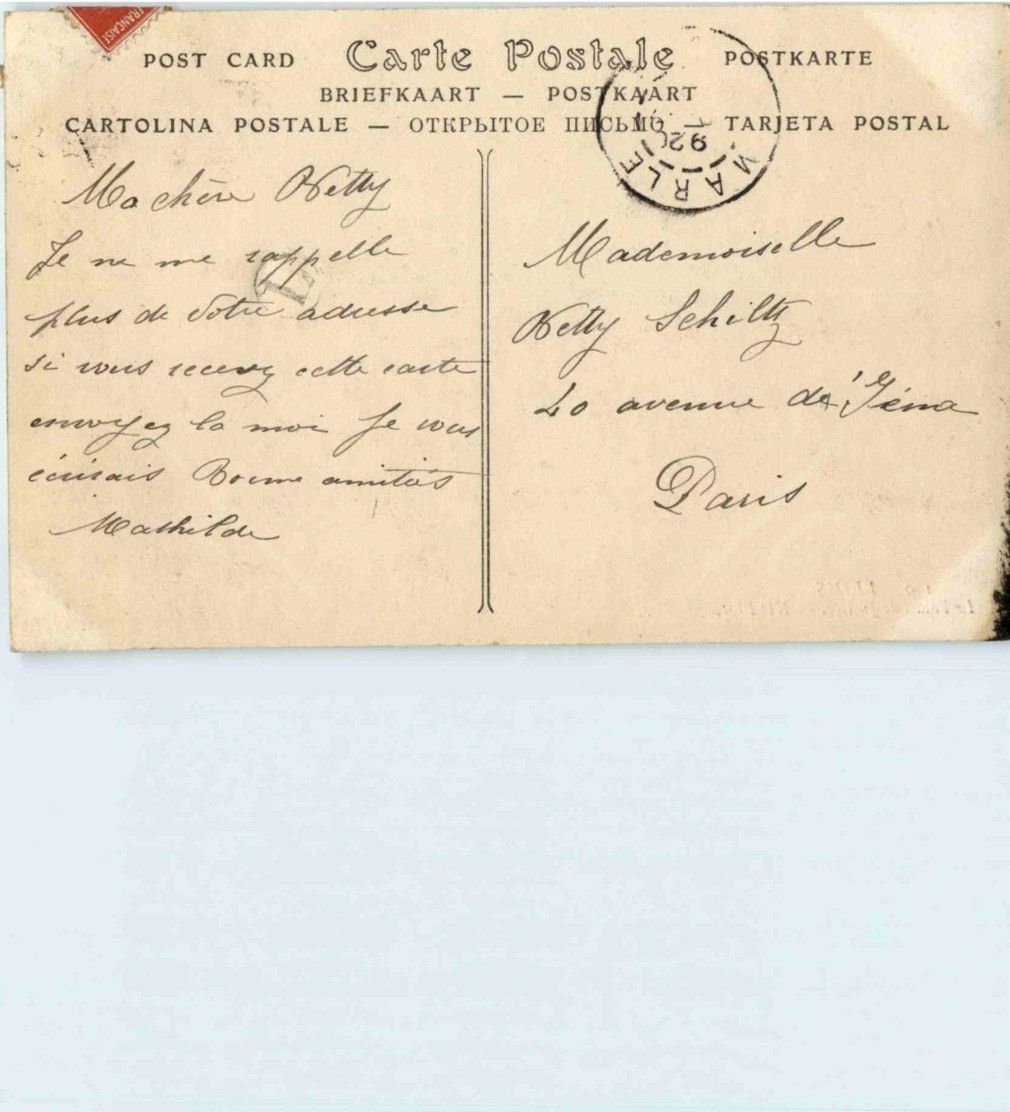 FRANÇAISE
POST CARD Carte Postale POSTKARTE
BRIEFKAART — POSTKAART
CARTOLINA POSTALE — ОТКРЫТОЕ ПИСЬМО — TARJETA POSTAL
MARLE
Ma chère Netty
Je ne me rappelle
plus de votre adresse
si vous recevez cette carte
envoyez la moi Je vous
écrirais Bonne amitiés
Mathilde
Mademoiselle
Netty Schiltz
40 avenue de Jéna
Paris